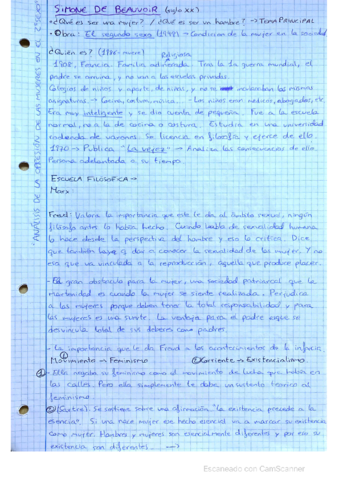 SIMONE DE BEAUVOIR (siglo XX)
• ¿Qué es ser una mujer? / ¿Qué es ser un hombre? → TEMA PRINCIPAL
• Obra: El segundo sexo (1949) → Condición de la mujer en la sociedad
• ¿Quién es? (1986 - muere) Religiosa
1908, Francia. Familia adinerada. Tras la 1ª guerra mundial, el
padre se arruina, y no van a las escuelas privadas.
Colegios de niñas y aparte, de niños, y no se las mismas
asignaturas → Cocina, costura, música... - Los niños eran médicos, abogados, etc.
Era muy inteligente y se dio cuenta de pequeña. Fue a la escuela
normal, no a la de cocina o costura. Estudia en una universidad
rodeada de varones. Se licencia en filosofía y ejerce de ello.
1970 → Publica "La vejez" → Analiza las
Persona adelantada a su tiempo.
ESCUELA FILOSÓFICA →
Marx:
Freud: Valora la importancia que este le da al ámbito sexual, ningún
filósofo antes lo había hecho. Cuando habla de sexualidad humana,
lo hace desde la perspectiva del hombre y eso lo critica. Dice
que también hay q dar a conocer la sexualidad de las mujeres. Y no
esa que va vinculada a la reproducción, aquella que produce placer.
- El gran obstáculo para la mujer, una sociedad patriarcal que la
maternidad es cuando la mujer se siente realizada. Perjudica
a las mujeres porque deben tener la total responsabilidad y para
los mujeres es una suerte. La ventaja para el padre es que se
desvincula total de sus deberes como padres.
- La importancia que le da Freud a los acontecimientos de la infancia
① Movimiento → Feminismo ② Corriente → Existencialismo.
① - Ella negaba su feminismo como el movimiento de lucha que había en
las calles. Pero ella simplemente le daba un sustento teórico al
feminismo.
② (Sartre) Se sostiene sobre una afirmación "la existencia precede a la
esencia". Si una nace mujer ese hecho esencial va a marcar su existencia
como mujer. Hombres y mujeres son esencialmente diferentes y por eso su
existencia son diferentes. →
"ANÁLISIS DE LA CONDICIÓN DE LAS MUJERES EN EL 2º SEXO"
Escaneado con CamScanner